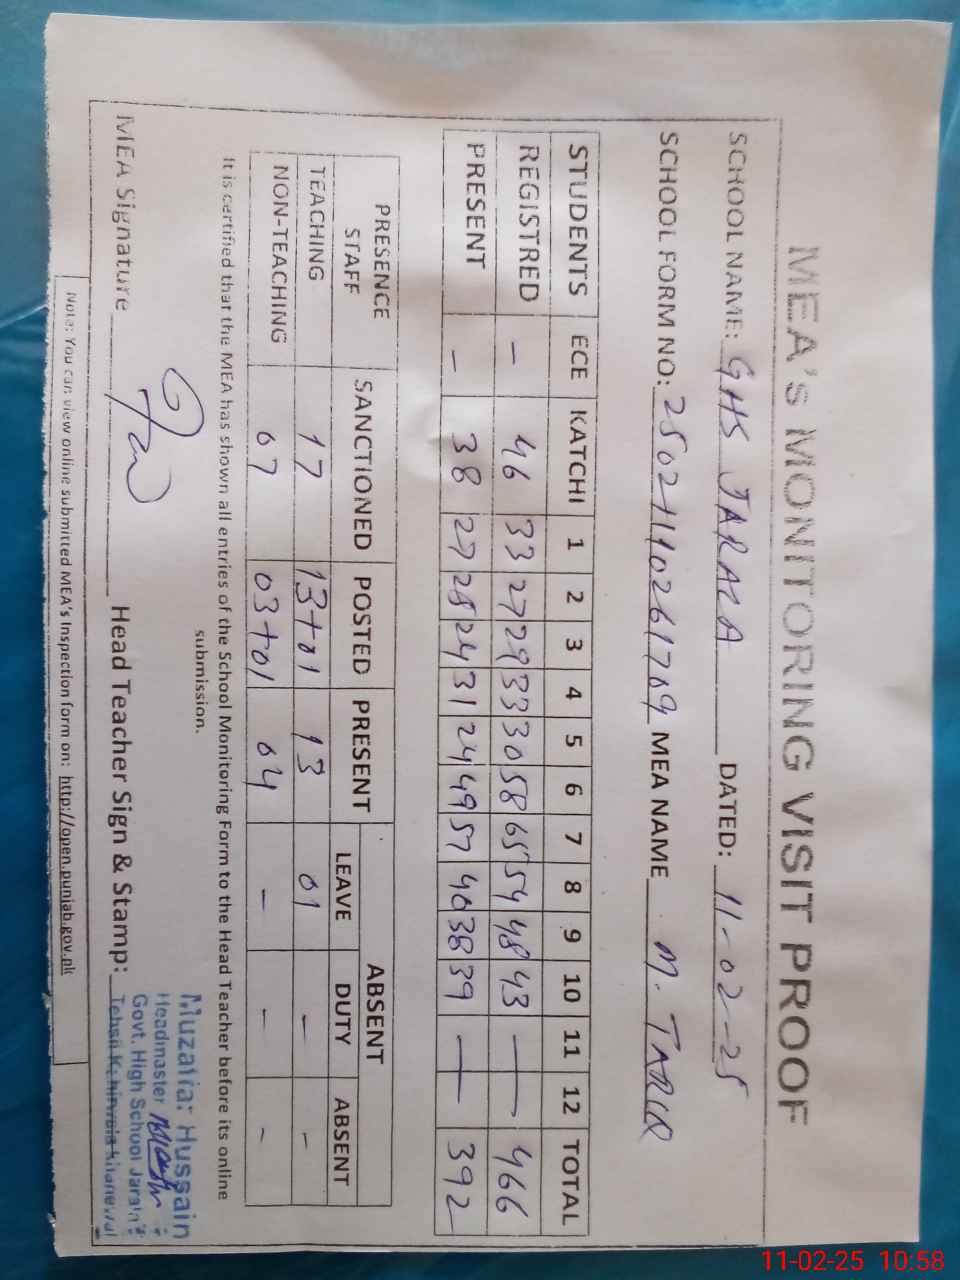 MEA's MONITORING VISIT PROOF
SCHOOL NAME: GHS JARALA DATED: 11-02-25
SCHOOL FORM NO: MEA NAME M. TARIQ
STUDENTS ECE KATCHI 1 2 3 4 5 6 7 8 9 10 11 12 TOTAL
REGISTRED - 46 33 27 29 33 30 58 65 54 48 43 — — 466
PRESENT - 38 27 25 24 31 24 49 57 40 38 39 — — 392
PRESENCE STAFF SANCTIONED POSTED PRESENT ABSENT
LEAVE DUTY ABSENT
TEACHING 17 13+01 13 01 - -
NON-TEACHING 07 03+01 04 - - -
It is certified that the MEA has shown all entries of the School Monitoring Form to the Head Teacher before its online
submission.
MEA Signature Head Teacher Sign & Stamp:
Muzaffar Hussain
Headmaster
Govt. High School Jarala
Tehsil
Note: You can view online submitted MEA's Inspection form on: http://open.punjab.gov.pk
11-02-25 10:58